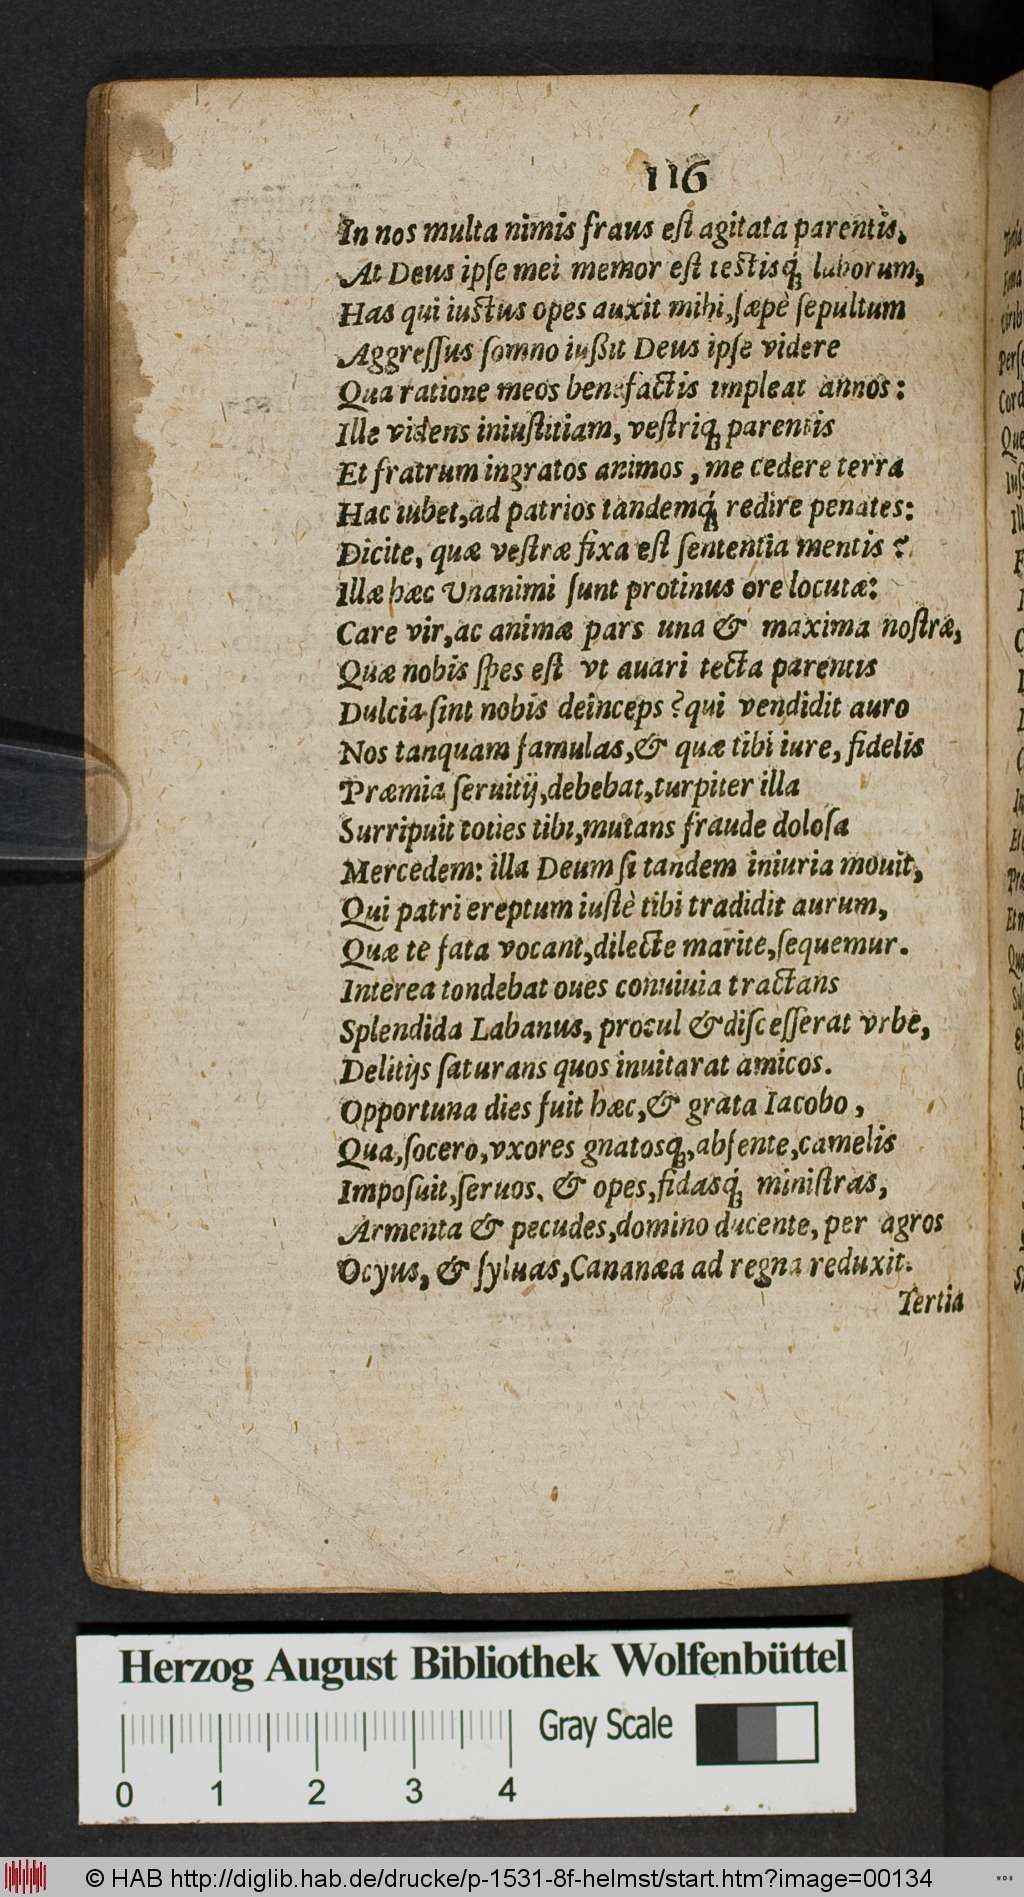 116
In nos multa nimis fraus eſt agitata parentis,
At Deus ipſe mei memor eſt teſtisq́; laborum,
Has qui iuctus opes auxit mihi, ſæpè ſepultum
Aggreſſus ſomno iußit Deus ipſe videre
Qua ratione meos benefactis impleat annos:
Ille videns iniuſtitiam, veſtriq; parentis
Et fratrum ingratos animos, me cedere terra
Hac iubet, ad patrios tandemq́; redire penates:
Dicite, quæ veſtræ fixa eſt ſententia mentis?
Illæ hæc Vnanimi ſunt protinus ore locutæ:
Care vir, ac animæ pars una & maxima noſtræ,
Quæ nobis ſpes eſt vt auari tecta parentis
Dulcia ſint nobis deinceps? qui vendidit auro
Nos tanquam famulas, & quæ tibi iure, fidelis
Præmia ſeruitij, debebat, turpiter illa
Surripuit toties tibi, mutans fraude doloſa
Mercedem: illa Deum ſi tandem iniuria mouit,
Qui patri ereptum iuſtè tibi tradidit aurum,
Quæ te fata vocant, dilecte marite, ſequemur.
Interea tondebat oues conuiuia tractans
Splendida Labanus, procul & diſceſſerat vrbe,
Delitijs ſaturans quos inuitarat amicos.
Opportuna dies fuit hæc, & grata Iacobo,
Qua, ſocero, vxores gnatosq;, abſente, camelis
Impoſuit, ſeruos, & opes, fidasq́; miniſtras,
Armenta & pecudes, domino ducente, per agros
Ocyus, & ſyluas, Cananæa ad regna reduxit.
Tertia
Herzog August Bibliothek Wolfenbüttel
Gray Scale
0 1 2 3 4
© HAB http://diglib.hab.de/drucke/p-1531-8f-helmst/start.htm?image=00134